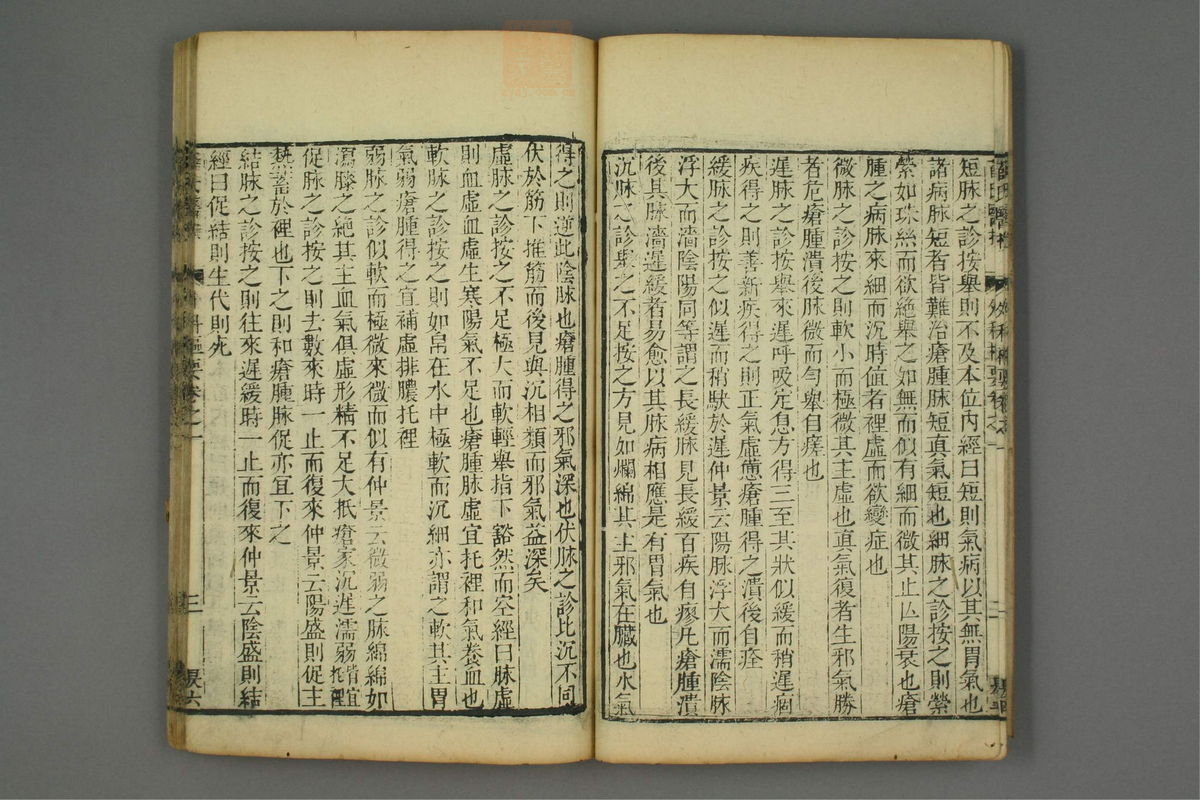 短脉之診按舉則不及本位內經曰短則氣病以其無胃氣也
諸病脉短者皆難治瘡腫脉短真氣短也細脉之診按之則縈
縈如珠絲而欲絕舉之如無而似有細而微其止仏陽衰也瘡
腫之病脉來細而沉時值者裡虛而欲變症也
微脉之診按之則軟小而極微其主虛也真氣復者生邪氣勝
者危瘡腫潰後脉微而勻舉自瘥也
遲脉之診按舉來遲呼吸定息方得三至其狀似緩而稍遲痼
疾得之則善新疾得之則正氣虛憊瘡腫得之潰後自痊
緩脉之診按之似遲而稍駃於遲仲景云陽脉浮大而濡陰脉
浮大而濇陰陽同等謂之長緩脉見長緩百疾自瘳凡瘡腫潰
後其脉濇遲緩者易愈以其脉病相應是有胃氣也
沉脉之診舉之不足按之方見如爛綿其主邪氣在臟也水氣
得之則逆此陰脉也瘡腫得之邪氣深也伏脉之診比沉不同
伏於筋下推筋而後見與沉相類而邪氣益深矣
虛脉之診按之不足極大而軟輕舉指下豁然而空經曰脉虛
則血虛血虛生寒陽氣不足也瘡腫脉虛宜托裡和氣養血也
軟脉之診按之則如帛在水中極軟而沉細亦謂之軟其主胃
氣弱瘡腫得之宜補虛排膿托裡
弱脉之診似軟而極微來微而似有仲景云微弱之脉綿綿如
瀉膝之絕其主血氣俱虛形精不足大抵瘡家沉遲濡弱皆宜托裡
促脉之診按之則去數來時一止而復來仲景云陽盛則促主
熱蓄於裡也下之則和瘡腫脉促亦宜下之
結脉之診按之則往來遲緩時一止而復來仲景云陰盛則結
經曰促結則生代則死
三